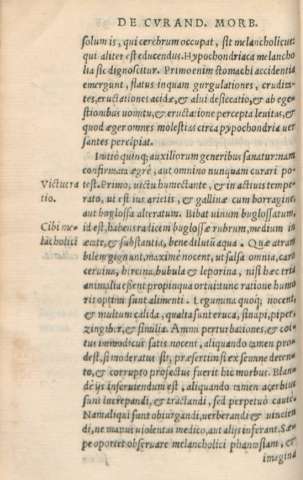 DE CVRAND. MORB.
solum is, qui cerebrum occupat, fit melancholicus:
qui aliter est educendus. Hypochondriaca melancho
lia sic dignoscitur. Primo enim stomachi accidentia
emergunt, flatus inquam gurgulationes, crudita-
tes, eructationes acidæ, & alui desiccatio, & ab ege-
stionibus uomitu, & eructatione percepta leuitas, &
quod æger omnes molestias circa hypochondria uer
santes percipiat.
Initio quinq; auxiliorum generibus sanatur: nam
confirmata ægrè, aut omnino nunquam curari po
Victus ra
test. Primo, uictu humectante, & in actiuis tempe-
tio.
rato, ut est ius arietis, & gallinæ cum borragine,
aut buglossa alteratum. Bibat uinum buglossatum,
Cibi me=
id est, habens radicem buglossæ rubrum, medium in
lācholici
ente, & substantia, bene dilutū aqua. Quæ atram
bilem gignunt, maximè nocent, ut salsa omnia, caro
ceruina, hircina, bubula & leporina, nisi hæc tria
animalia essent propinqua ortui: tunc ratione humo
ris optimi sunt alimenti. Legumina quoq; nocent,
& multum calida, qualia sunt eruca, sinapi, piper,
zingiber, & similia. Animi perturbationes, & coi-
tus immodicus satis nocent, aliquando tamen pro-
dest, si moderatus sit, præsertim si ex semine detento
to, & corrupto profectus fuerit hic morbus. Blan-
dè ijs inseruiendum est, aliquando tamen acerbius
sunt increpandi, & tractandi, sed perpetuò cautè.
Nam aliqui sunt obiurgandi, uerberandi & uincien
di, ne manus uiolentas medico, aut alijs inferant. Sæ=
pe oportet obseruare melancholici phantasiam, &
imagina